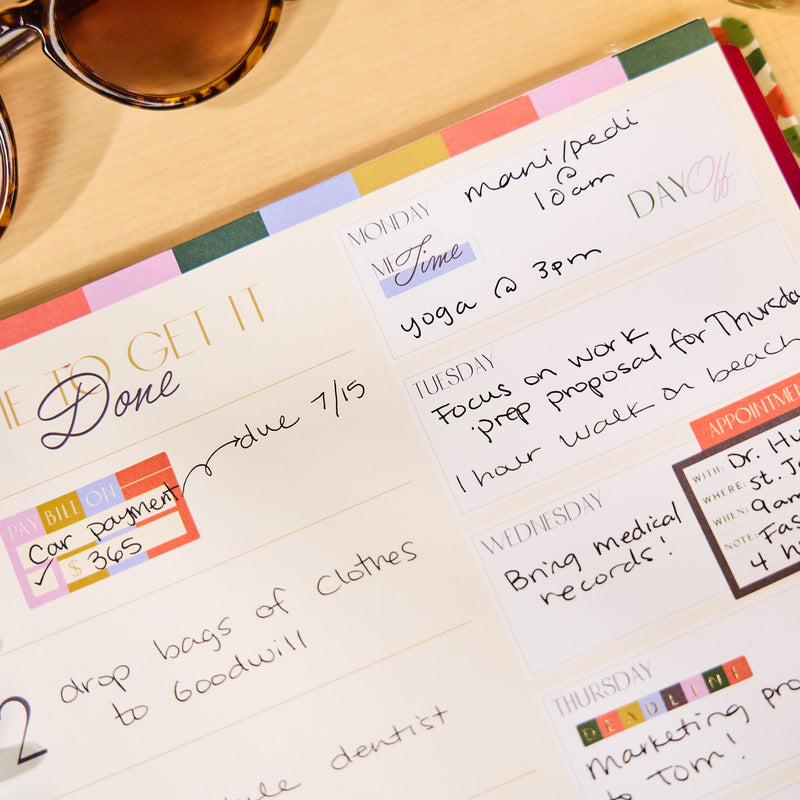 TO GET IT
Done
PAY BILL ON
Car payment
✓ $ 365
due 7/15
2
drop bags of clothes
to Goodwill
dentist
MONDAY
mani/pedi
@
10am
DAY Off
ME Time
yoga @ 3pm
TUESDAY
Focus on work
prep proposal for Thursday
1 hour walk on beach
WEDNESDAY
Bring medical
records!
APPOINTMENT
WITH: Dr.
WHERE: St.
WHEN: 9am
NOTE:
4
THURSDAY
DEADLINE
Marketing
to Tom!